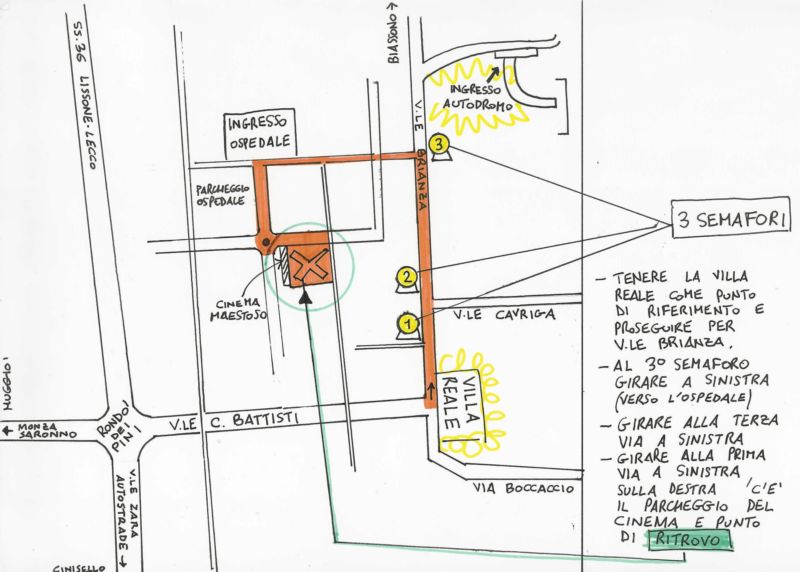 BIASSONO
SS.36 LISSONE-LECCO
INGRESSO
AUTODROMO
V.LE BRIANZA
INGRESSO
OSPEDALE
3
PARCHEGGIO
OSPEDALE
3 SEMAFORI
2
CINEMA
MAESTOSO
1
V.LE CAVRIGA
- TENERE LA VILLA
REALE COME PUNTO
DI RIFERIMENTO E
PROSEGUIRE PER
V.LE BRIANZA.
- AL 3° SEMAFORO
GIRARE A SINISTRA
(VERSO L'OSPEDALE)
- GIRARE ALLA TERZA
VIA A SINISTRA
- GIRARE ALLA PRIMA
VIA A SINISTRA
SULLA DESTRA 'C'E'
IL PARCHEGGIO DEL
CINEMA E PUNTO
DI RITROVO
VILLA
REALE
MUGGIO'
MONZA
SARONNO
RONDO'
DEI
PINI
V.LE C. BATTISTI
V.LE ZARA
AUTOSTRADE
VIA BOCCACCIO
CINISELLO